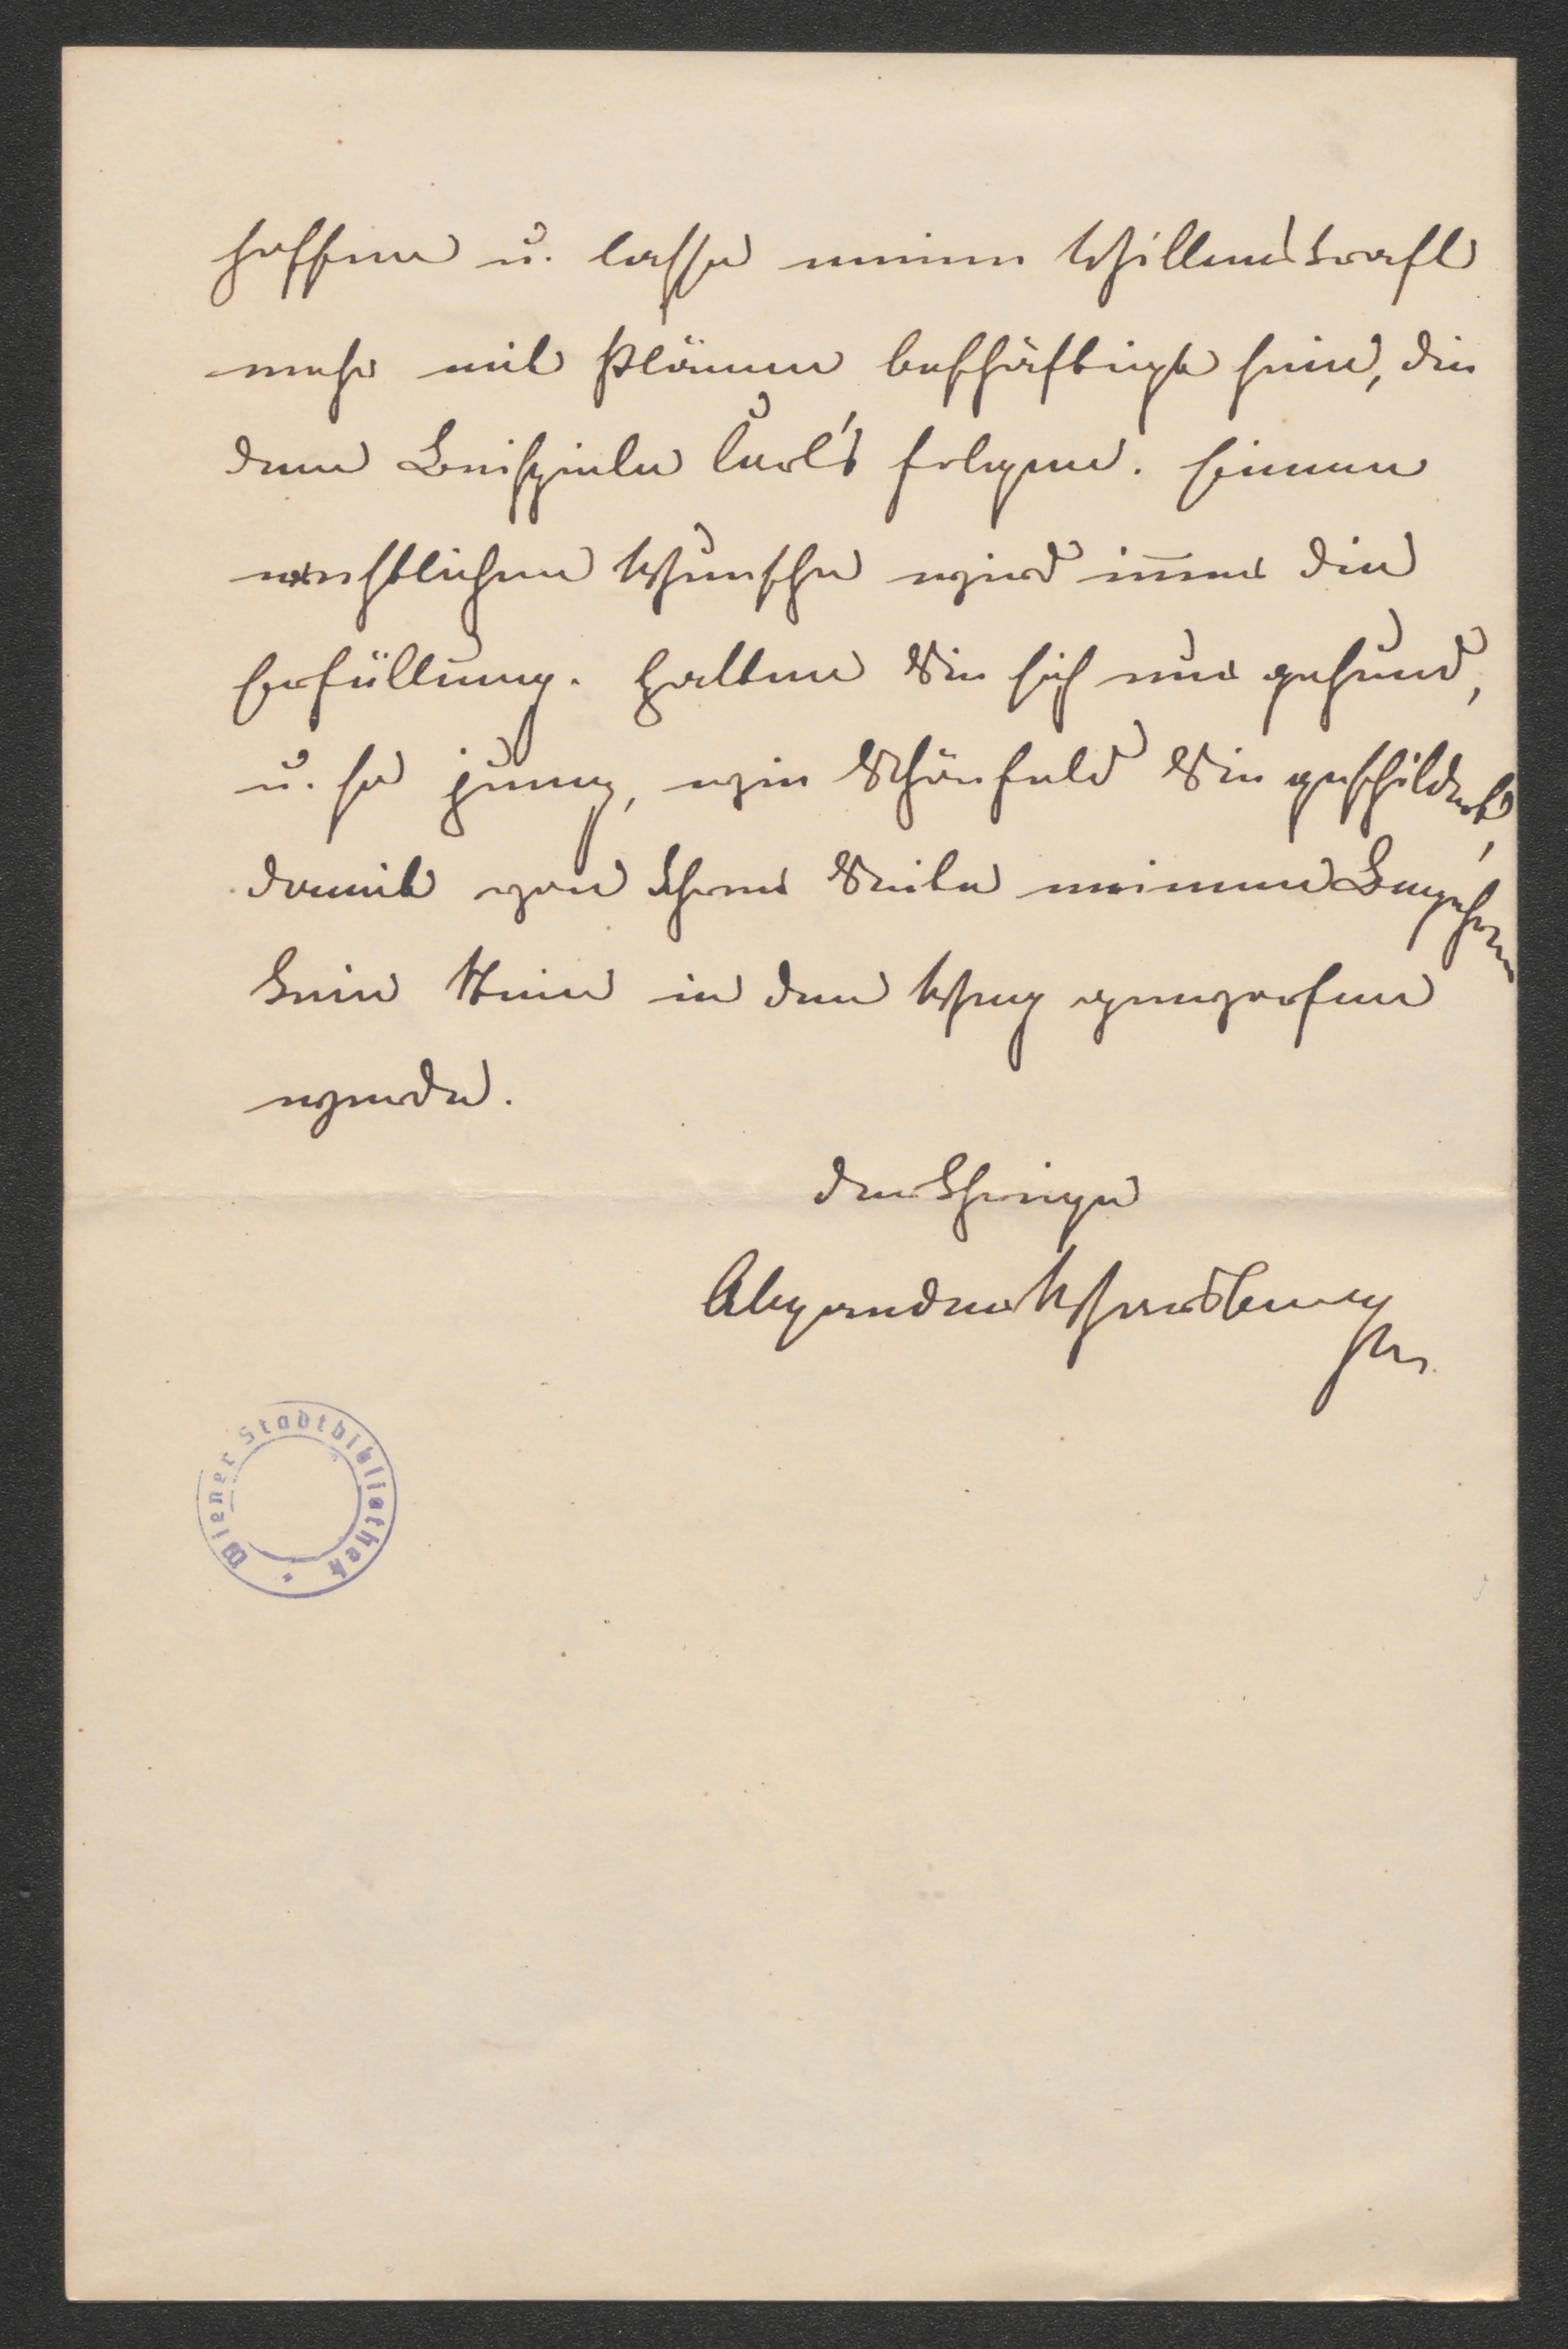 hoffen u. lasse meine Willenskraft
mehr mit Plänen beschäftigt sein, die
dem Beispiele Carl's folgen. Einem
ernstlichen Wunsche wird immer die
Erfüllung. Halten Sie sich nur gesund,
u. so jung, wie Schönfeld Sie geschildert,
damit von Ihrer Seite meinem Begehren
kein Stein in den Weg geworfen
werde.
der Ihrige
Alexander Strakosch
Wiener Stadtbibliothek